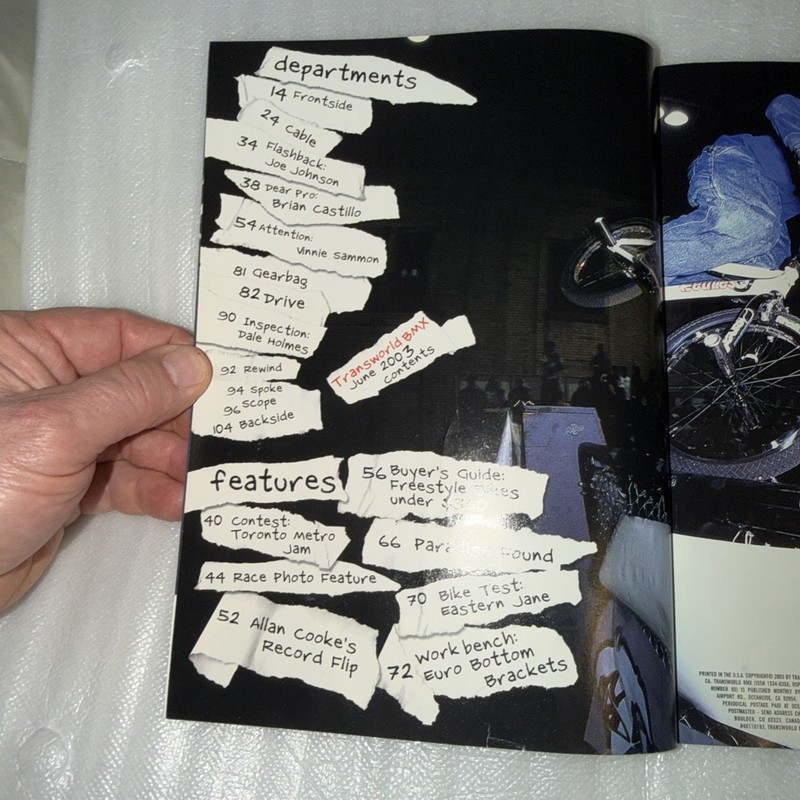 departments
14 Frontside
24 Cable
34 Flashback:
Joe Johnson
38 Dear Pro:
Brian Castillo
54 Attention:
Vinnie Sammon
81 Gearbag
82 Drive
90 Inspection:
Dale Holmes
92 Rewind
94 Spoke
96 Scope
104 Backside
Transworld BMX
June 2003
contents
features
40 Contest:
Toronto Metro
Jam
44 Race Photo Feature
52 Allan Cooke's
Record Flip
56 Buyer's Guide:
Freestyle
under
66 Found
70 Bike Test:
Eastern Jane
72 Workbench:
Euro Bottom
Brackets
PRINTED IN THE U.S.A. COPYRIGHT© 2003 BY
CA. TRANSWORLD BMX (ISSN
IS PUBLISHED MONTHLY
AIRPORT RD., OCEANSIDE, CA
PERIODICAL POSTAGE PAID
POSTMASTER - SEND ADDRESS
BOULDER, CO
TRANSWORLD